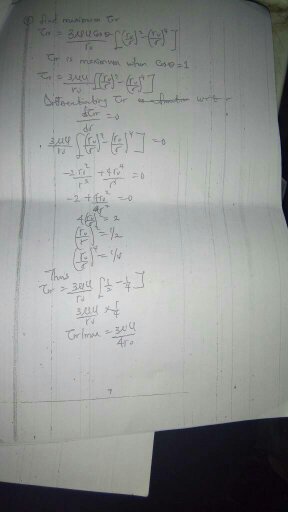 find maximum τr
τr = 3μU cosθ / r₀ [(r₀/r)² - (r₀/r)⁴]
τr is maximum when cosθ = 1
τr = 3μU / r₀ [(r₀/r)² - (r₀/r)⁴]
Differentiating τr w.r.t r
dτr/dr = 0
3μU / r₀ [(r₀/r)² - (r₀/r)⁴] = 0
-2r₀²/r³ + 4r₀⁴/r⁵ = 0
-2 + 4r₀²/r² = 0
4(r₀/r)² = 2
(r₀/r)² = 1/2
(r₀/r)⁴ = 1/4
Thus
τr = 3μU / r₀ [1/2 - 1/4]
3μU / r₀ × 1/4
τr/max = 3μU / 4r₀
7